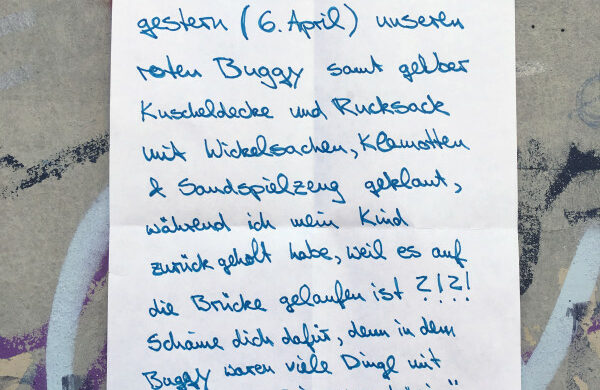 gestern (6. April) unseren
roten Buggy samt gelber
Kuscheldecke und Rucksack
mit Wickelsachen, Klamotten
& Sandspielzeug geklaut,
während ich mein Kind
zurück geholt habe, weil es auf
die Brücke gelaufen ist ?!?!
Schäme dich dafür, denn in dem
Buggy waren viele Dinge mit